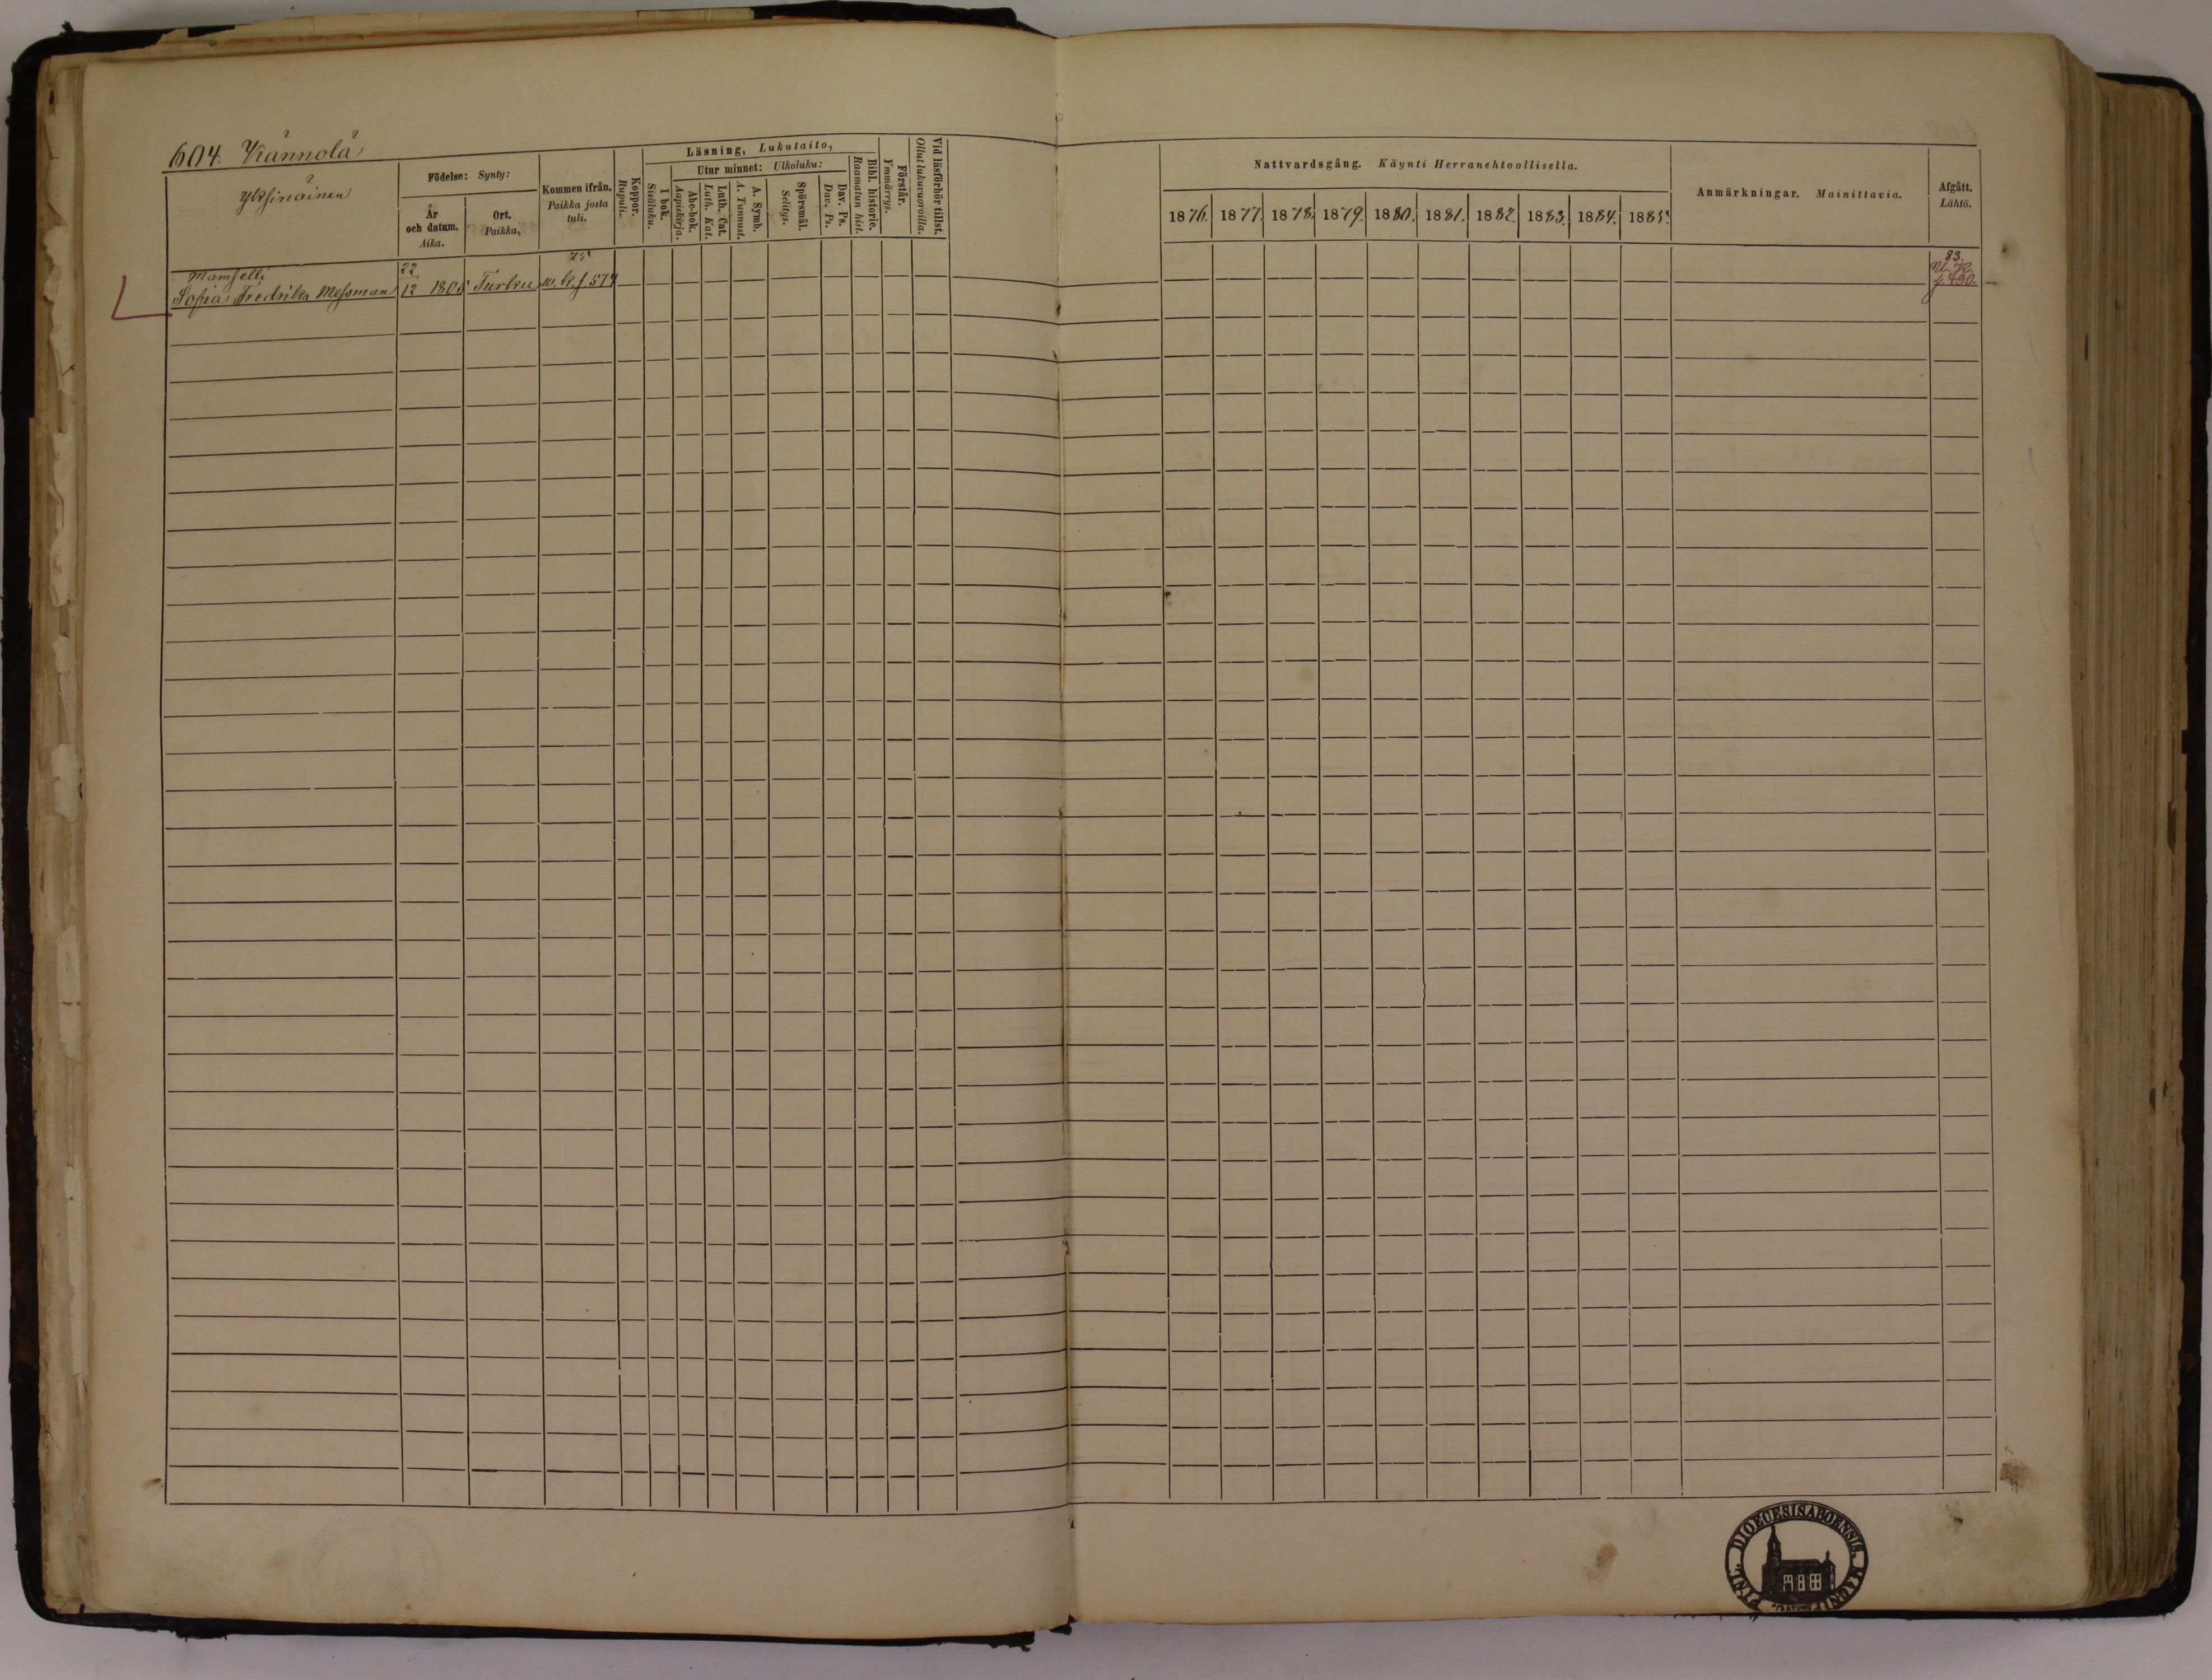 604. Kännölä
Yksinäinen
Födelse: Synty:
År och datum. Aika.
Ort. Paikka,
Kommen ifrån. Paikka josta tuli.
Koppor. Rupuli.
Läsning, Lukutaito,
I bok. Sisäluku.
Utur minnet: Ulkoluku:
Abc-bok. Aapiskirja.
Luth. Cat. Luth. Kat.
A. Symb. A. Tunnust.
Spörsmål. Selitys.
Dav. Ps. Dav. Ps.
Bibl. historie. Raamatun hist.
Förstår. Ymmärrys.
Vid läsförhör tillst. Ollut lukuvuoroilla.
Nattvardsgång. Käynti Herranehtoollisella.
1876. 1877. 1878. 1879. 1880. 1881. 1882. 1883. 1884. 1885.
Anmärkningar. Mainittavia.
Afgått. Lähtö.
Mamselli 22 75 83.
Sofia Fredrika Messman 12 1805 Turku w. k. s. 574
p. 490.
DIOECESIS ABOENSIS. MAGNI